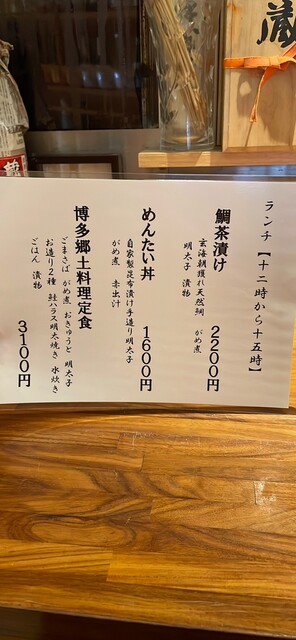 蔵
ランチ【十二時から十五時】
鯛茶漬け 2200円
玄海朝獲れ天然鯛 がめ煮
明太子 漬物
めんたい丼 1600円
自家製昆布漬け手造り明太子
がめ煮 赤出汁
博多郷土料理定食 3100円
ごまさば がめ煮 おきゅうと 明太子
お造り2種 鮭ハラス明太焼き 水炊き
ごはん 漬物